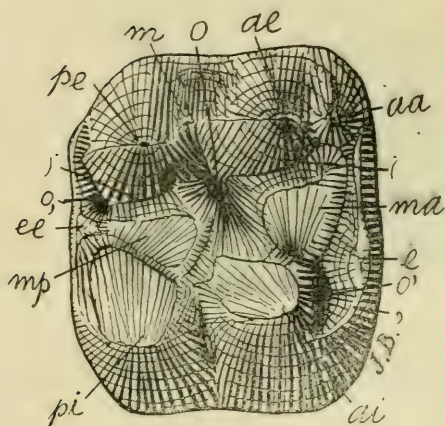 m o ae
pe aa
j i
o, ma
ee
mp e
o'
J.B.
pi ai